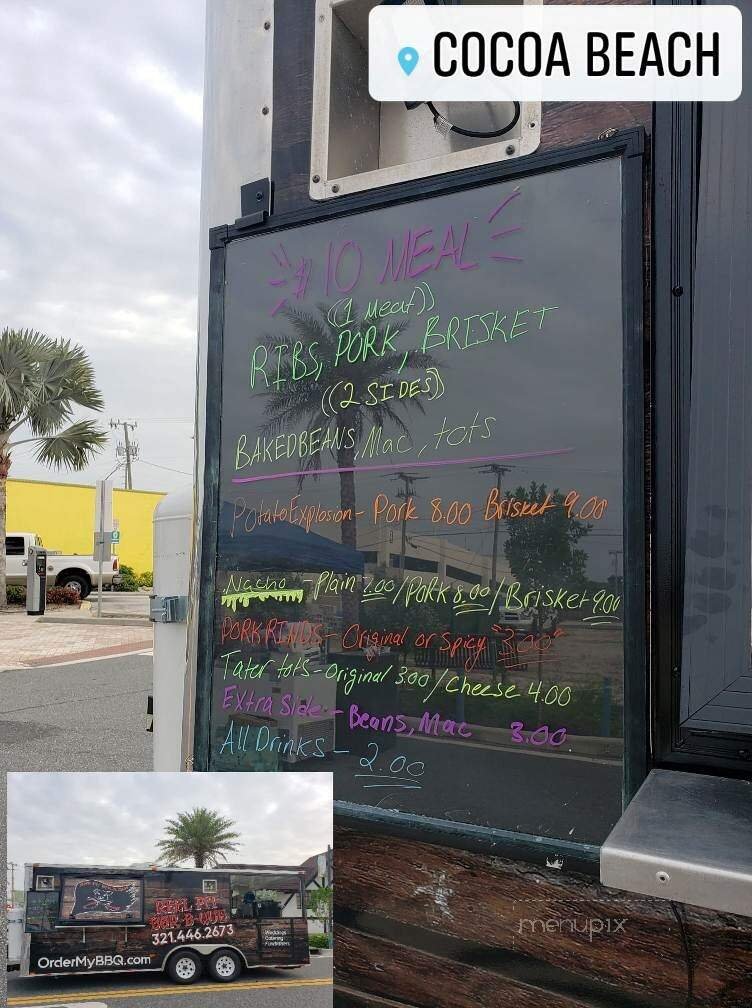 COCOA BEACH
$10 MEAL
((1 Meat))
RIBS, PORK, BRISKET
((2 SIDES))
BAKED BEANS, Mac, tots
Potato Explosion - Pork 8.00 Brisket 9.00
Nacho - Plain 7.00/Pork 8.00/Brisket 9.00
PORK RINDS - Original or Spicy "3.00"
Tater tots - Original 3.00/Cheese 4.00
Extra Side - Beans, Mac 3.00
All Drinks - 2.00
menupix
REEL PIT
BAR-B-QUE
321.446.2673
Weddings
Catering
Fundraisers
OrderMyBBQ.com